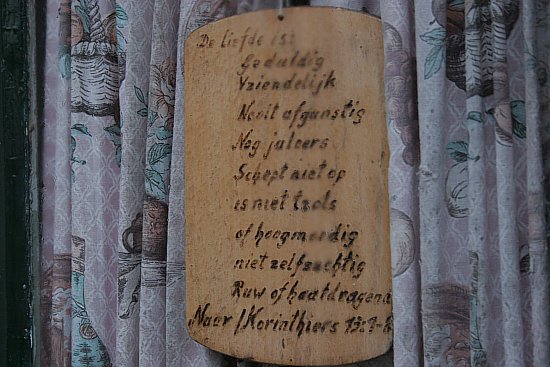 De liefde is:
Geduldig
Vriendelijk
Nooit afgunstig
Nog jaloers
Schept niet op
is niet trots
of hoogmoedig
niet zelfzuchtig
Ruw of haatdragend
Naar 1 Korinthiers 13:1-8